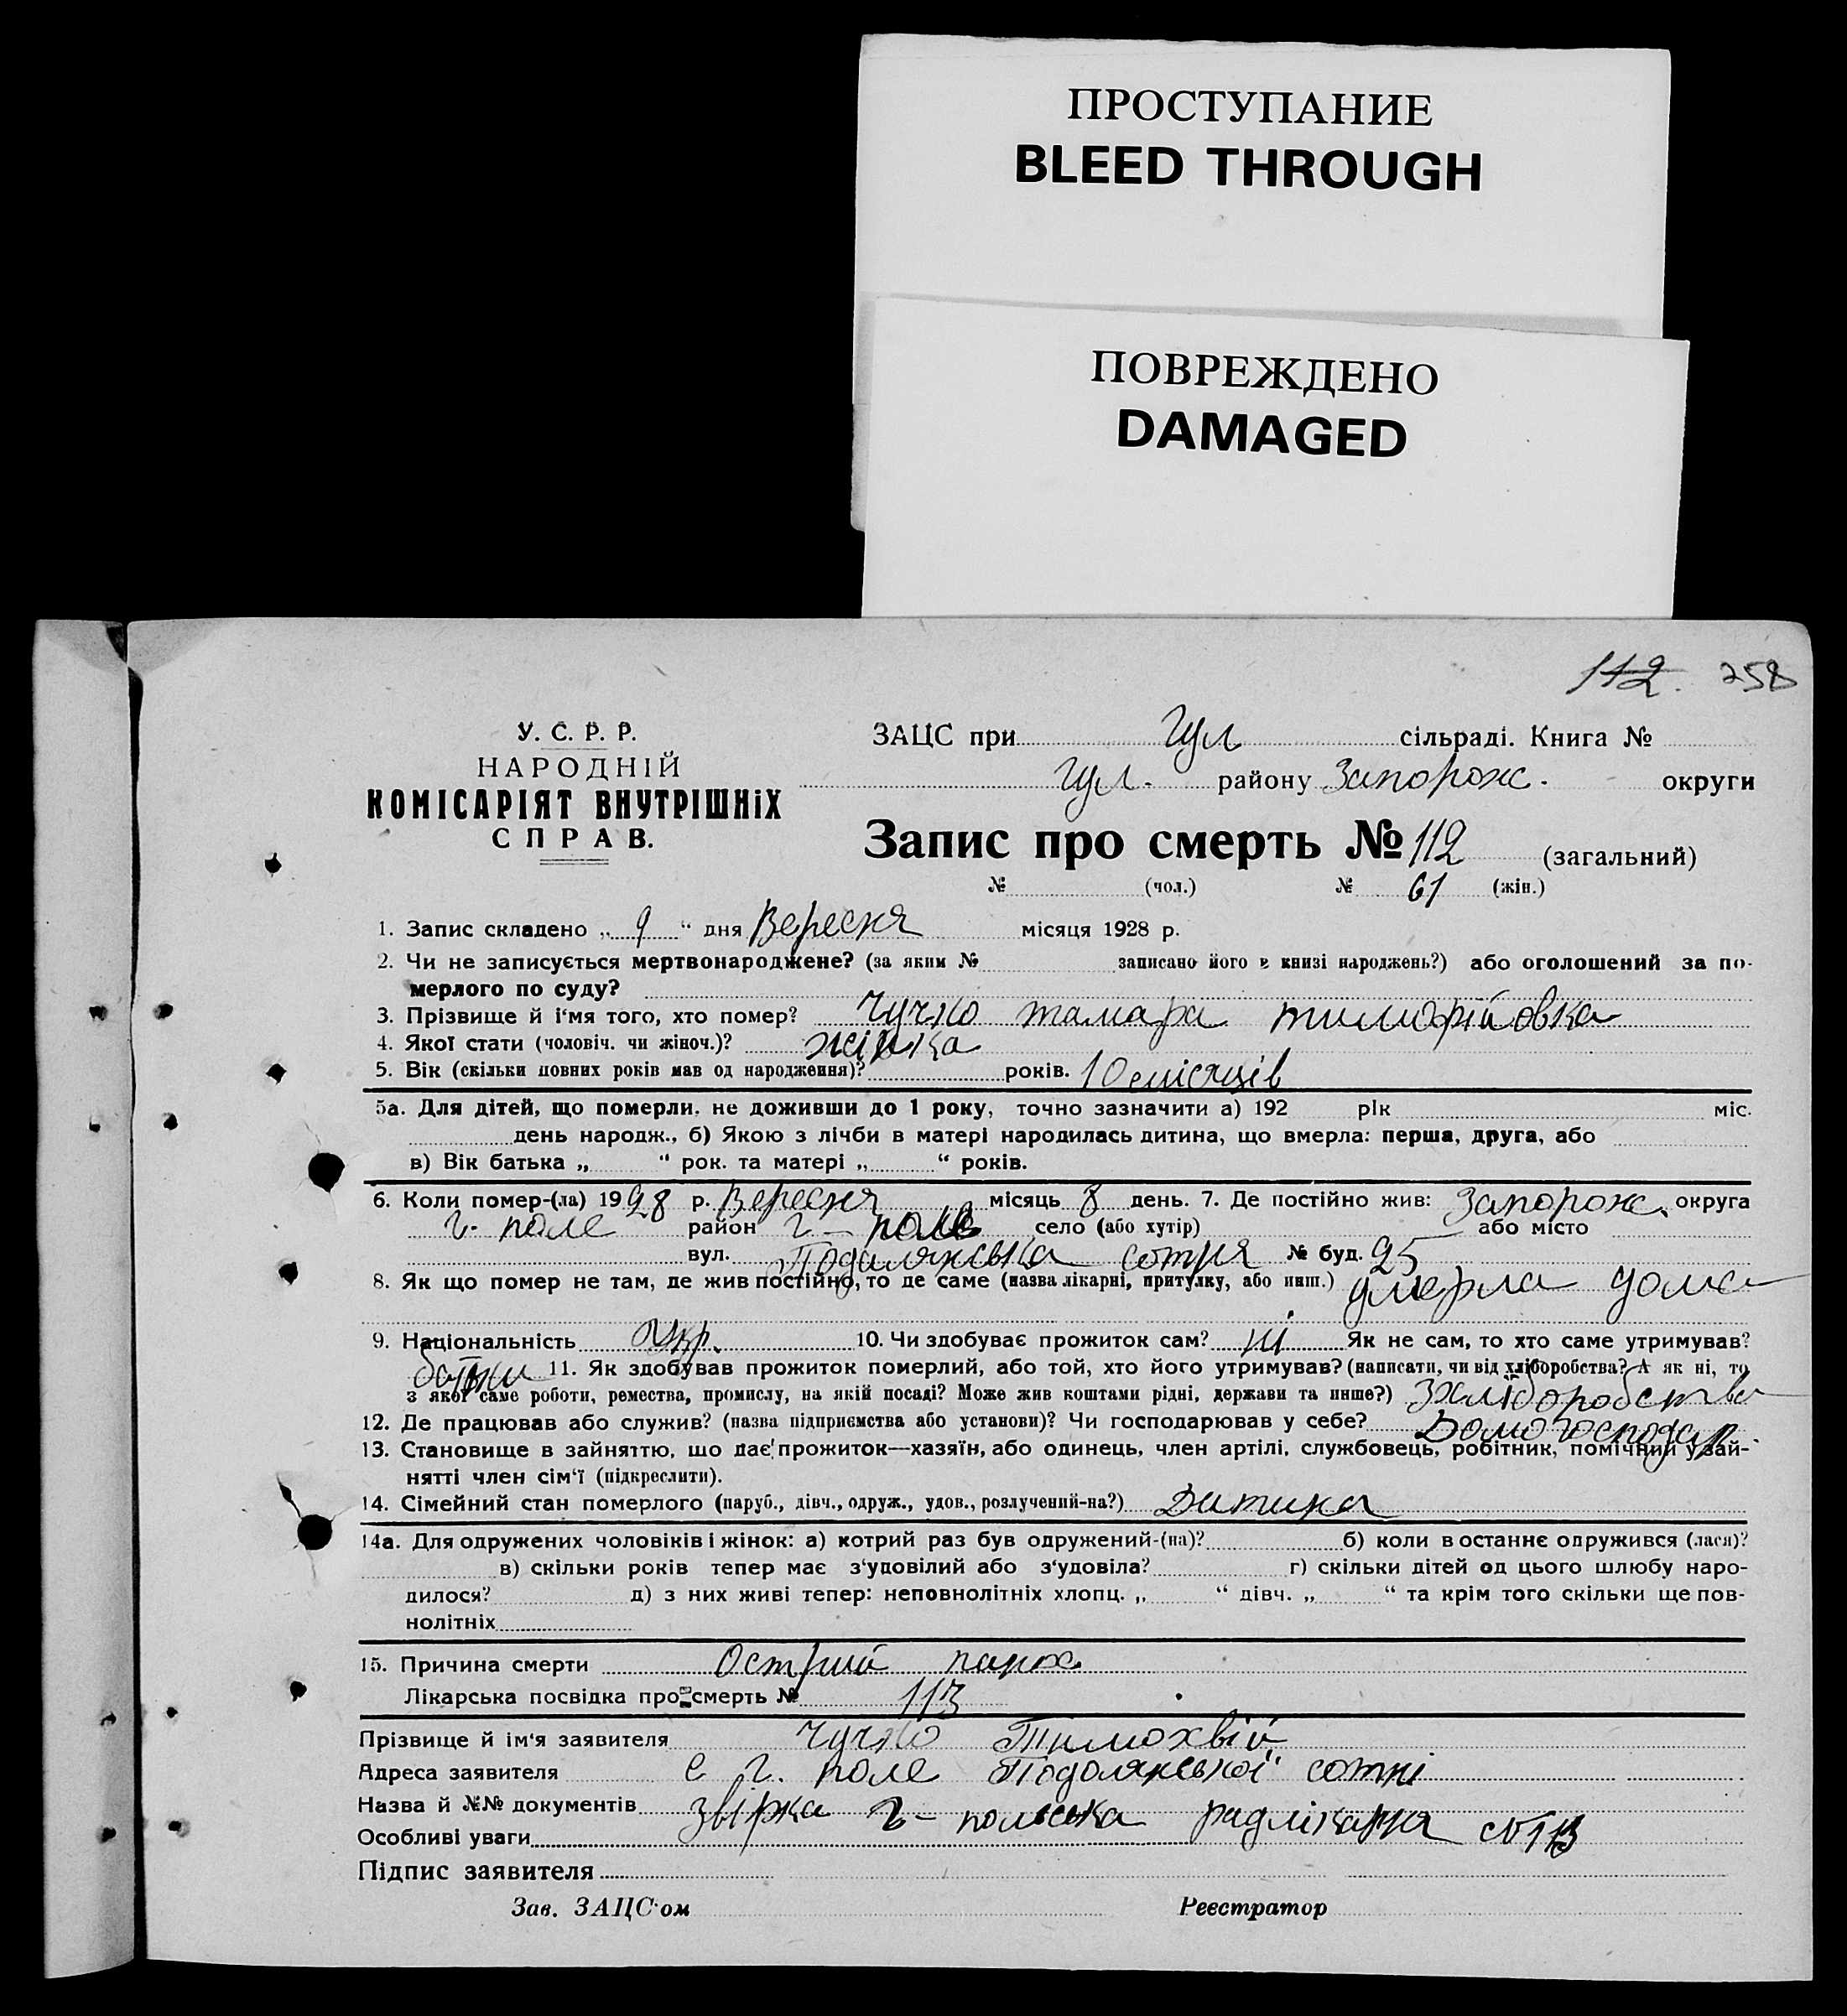 ПРОСТУПАНИЕ
BLEED THROUGH
ПОВРЕЖДЕНО
DAMAGED
112. 258
У. С. Р. Р.
НАРОДНІЙ
КОМІСАРІЯТ ВНУТРІШНіХ
СПРАВ.
ЗАЦС при Гул сільраді. Книга №
Гул. району Запорож. округи
Запис про смерть № 112 (загальний)
№ (чол.) № 61 (жін.)
1. Запис складено „ 9 “ дня Вересня місяця 1928 р.
2. Чи не записується мертвонароджене? (за яким № записано його в книзі народжень?) або оголошений за по-
мерлого по суду?
3. Прізвище й і'мя того, хто помер? Чучко тамара тимофійовка
4. Якої стати (чоловіч. чи жіноч.)? жінка
5. Вік (скільки повних років мав од народження)? років. 10 місяців
5а. Для дітей, що померли, не доживши до 1 року, точно зазначити а) 192 рік міс.
день народж., б) Якою з лічби в матері народилась дитина, що вмерла: перша, друга, або
в) Вік батька „ “ рок. та матері „ “ років.
6. Коли помер-(ла) 1928 р. Вересня місяць 8 день. 7. Де постійно жив: Запорож. округа
г. поле район г – поле село (або хутір) або місто
вул. Подолянська сотня № буд. 25
8. Як що помер не там, де жив постійно, то де саме (назва лікарні, притулку, або инш.) умерла дома
9. Національність Укр. 10. Чи здобуває прожиток сам? ні Як не сам, то хто саме утримував?
батьки 11. Як здобував прожиток померлий, або той, хто його утримував? (написати, чи від хліборобства? А як ні, то
з якої саме роботи, ремества, промислу, на якій посаді? Може жив коштами рідні, держави та инше?) Зхліборобства
12. Де працював або служив? (назва підприємства або установи)? Чи господарював у себе? Домогосподар
13. Становище в зайняттю, що дає прожиток—хазяїн, або одинець, член артілі, службовець, робітник, помічний у зай-
нятті член сім'ї (підкреслити).
14. Сімейний стан померлого (паруб., дівч., одруж., удов., розлучений-на?) Дитина
14а. Для одружених чоловіків і жінок: а) котрий раз був одружений-(на)? б) коли востаннє одружився (лася)?
в) скільки років тепер має з'удовілий або з'удовіла? г) скільки дітей од цього шлюбу наро-
дилося? д) з них живі тепер: неповнолітніх хлопц. „ “ дівч. „ “ та крім того скільки ще пов-
нолітніх
15. Причина смерти Острий
Лікарська посвідка про смерть № 113
Прізвище й ім'я заявителя Чучко Тимохвій
Адреса заявителя с г. поле Подолянської сотні
Назва й №№ документів звірка г – польська радлікарня №113
Особливі уваги
Підпис заявителя
Зав. ЗАЦС'ом Реєстратор